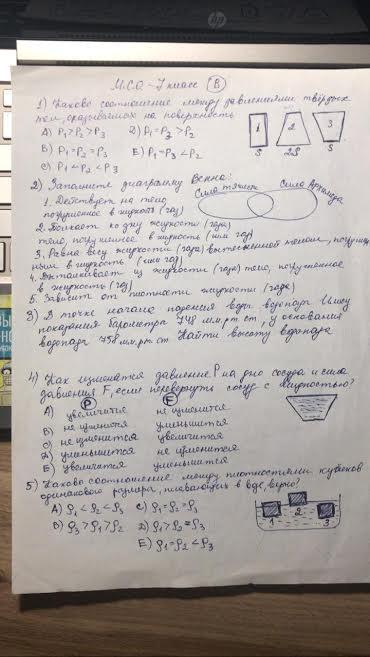 М.С.О. - 7 класс (В)
1) Каково соотношение между давлениями твёрдых
тел, оказываемых на поверхность
A) P₁>P₂>P₃ D) P₁=P₃>P₂
B) P₁=P₂=P₃ E) P₁=P₃<P₂
C) P₁<P₂<P₃
1 2 3
S 2S S
2) Заполните диаграмму Венна:
Сила тяжести Сила Архимеда
1. Действует на тело
погружённое в жидкость (газ)
2. Толкает ко дну жидкости (газа)
тело, погружённое в жидкость (или газ)
3. Равна весу жидкости (газа) вытесненной телом, погружён-
ным в жидкость (или газ)
4. Выталкивает из жидкости (газа) тело, погружённое
в жидкость (газ)
5. Зависит от плотности жидкости (газа)
3) В точке начала падения воды водопада
показания барометра 748 мм.рт.ст, у основания
водопада 758 мм.рт.ст Найти высоту водопада
4) Как изменятся давление P на дно сосуда и сила
давления F, если перевернуть сосуд с жидкостью?
P F
A) увеличится не изменится
B) не изменится уменьшится
C) не изменится увеличится
D) уменьшится не изменится
E) увеличится уменьшится
5) Каково соотношение между плотностями кубиков
одинакового размера, плавающих в воде, верно?
A) ρ₁<ρ₂<ρ₃ C) ρ₁=ρ₂=ρ₃
B) ρ₃>ρ₁>ρ₂ D) ρ₁>ρ₂=ρ₃
E) ρ₁=ρ₂<ρ₃
1 2 3